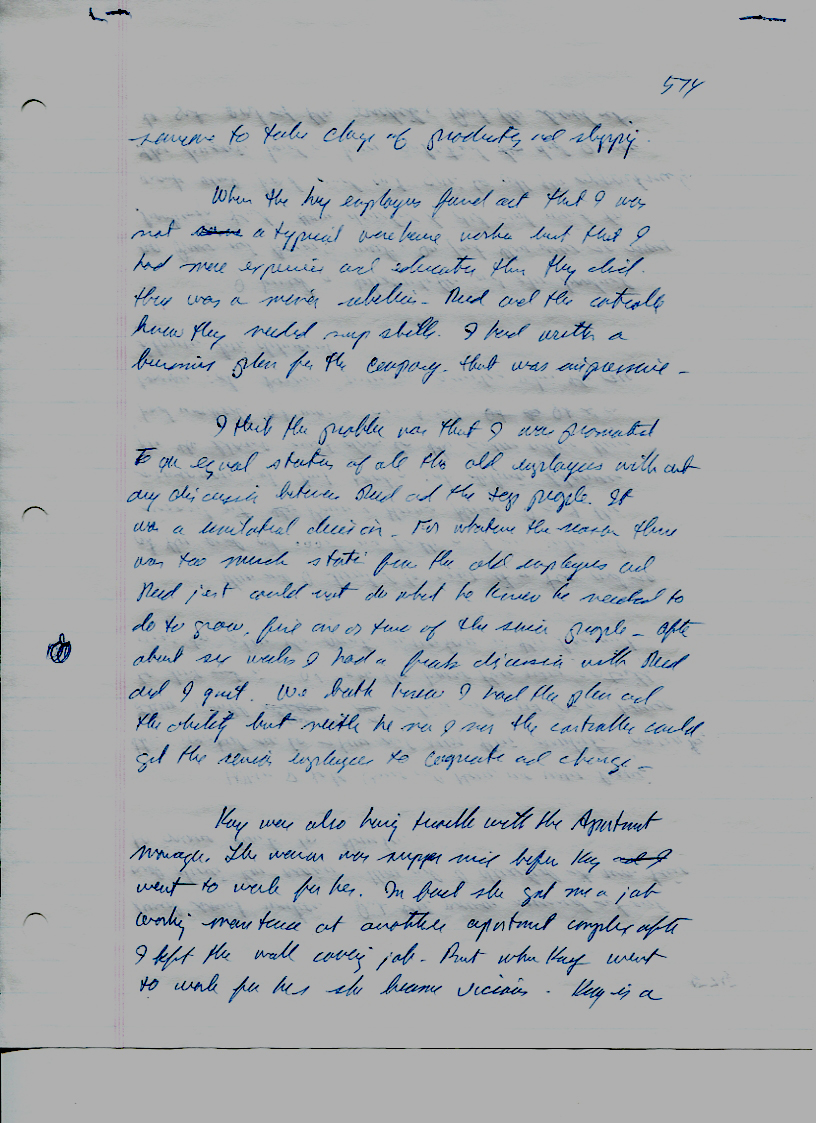 574
someone to take charge of production and shipping.
When the key employees found out that I was
not a typical warehouse worker but that I
had more experience and education than they did.
there was a minor rebellion - Reed and the controller
knew they needed my skills. I had written a
business plan for the company. that was impressive -
I think the problem was that I was promoted
to an equal status of all the old employees without
any discussion between Reed and the key people. It
was a unilateral decision - For whatever the reason there
was too much static from the old employees and
Reed just could not do what he knew he needed to
do to grow, fire one or two of the senior people - After
about six weeks I had a frank discussion with Reed
and I quit. We both knew I had the plan and
the ability but neither he nor I nor the controller could
get the senior employees to cooperate and change -
Kay was also having trouble with the Apartment
manager. The woman was super nice before Kay and I
went to work for her. In fact she got me a job
working maintenance at another apartment complex after
I left the wall covering job - But when Kay went
to work for her she became vicious. Kay is a